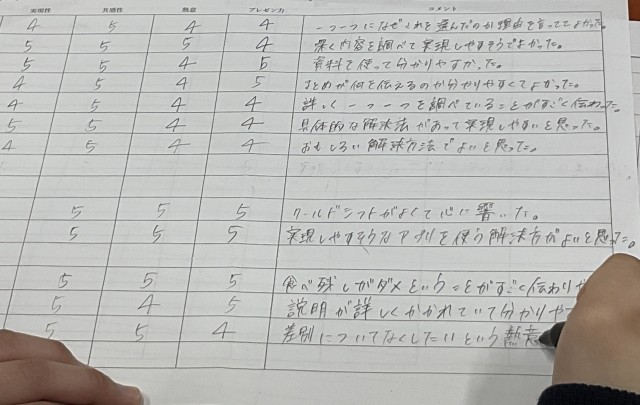 実現性 共感性 熱意 プレゼン力 コメント
4 5 4 4 一つ一つになぜこれを選んだのか理由を言っててよかった。
5 5 5 4 深く内容を調べて実現しやすそうでよかった。
5 5 4 5 資料を使って分かりやすかった。
4 5 4 5 まとめが何を伝えるのか分かりやすくてよかった。
4 5 4 4 詳しく一つ一つを調べていることがすごく伝わった
5 5 4 4 具体的な解決法があって実現しやすいと思った。
4 5 4 4 おもしろい解決方法でよいと思った。
5 5 5 ワールドシフトがよくて心に響いた。
5 5 5 実現しやすそうなアプリを使う解決方がよいと思った。
5 5 5 食べ残しがダメということがすごく伝わりや
5 4 5 説明が詳しくかかれていて分かりや
5 5 4 差別についてなくしたいという熱意